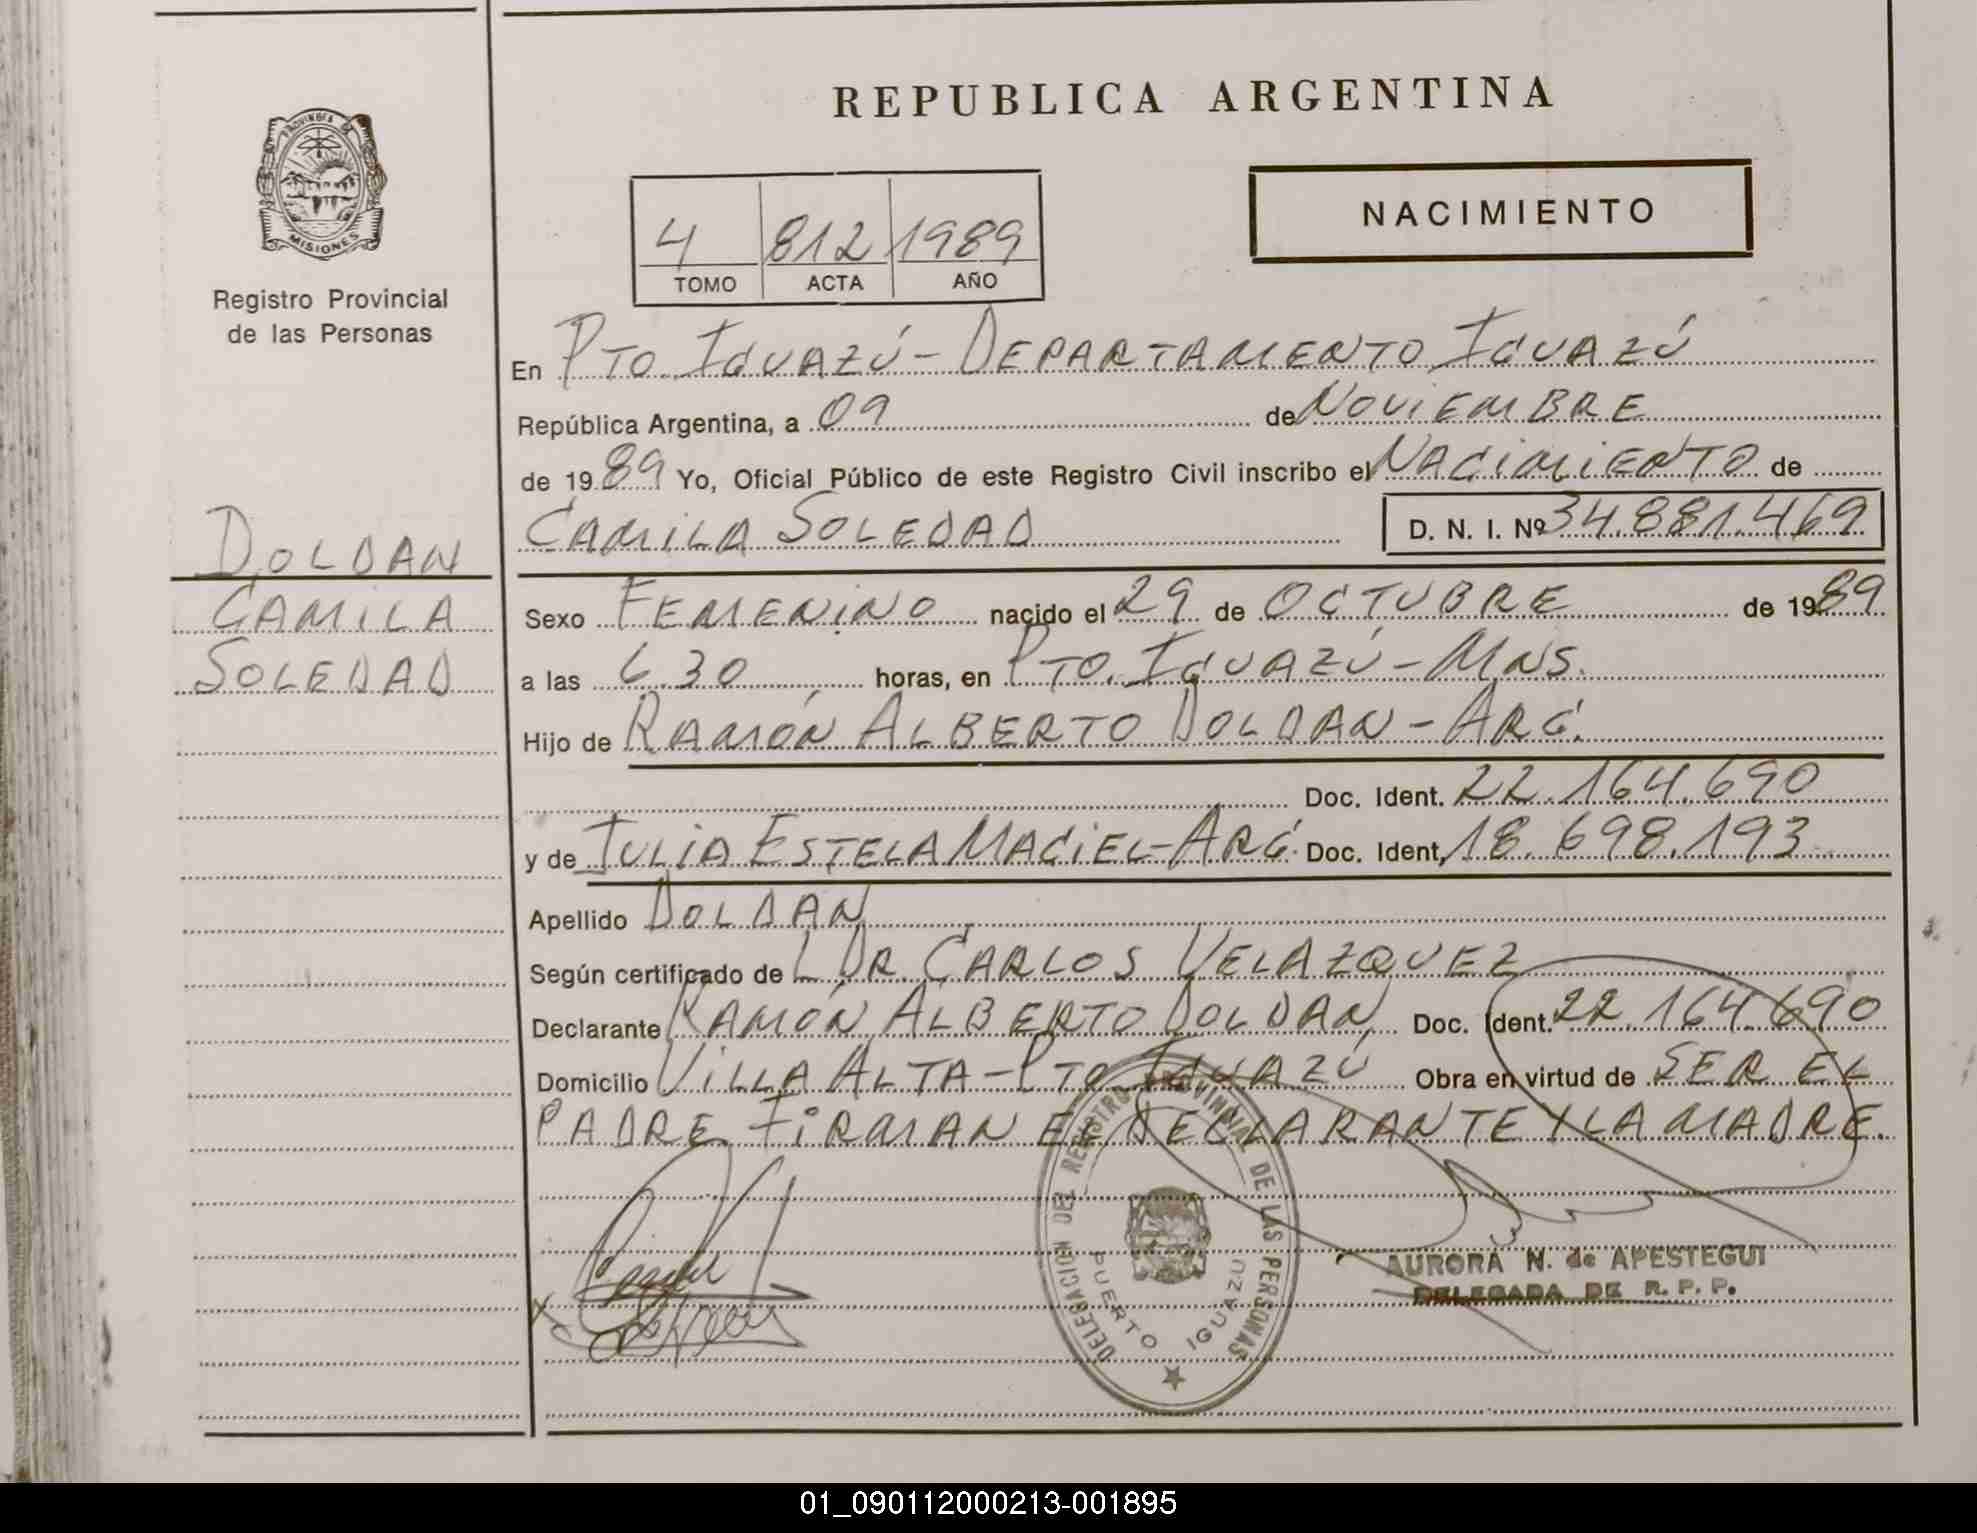 REPUBLICA ARGENTINA
PROVINCIA DE
MISIONES
Registro Provincial
de las Personas
4 812 1989
TOMO ACTA AÑO
NACIMIENTO
En PTO. IGUAZÚ - DEPARTAMENTO IGUAZÚ
República Argentina, a 09 de NOVIEMBRE
de 1989 Yo, Oficial Público de este Registro Civil inscribo el NACIMIENTO de
CAMILA SOLEDAD D. N. I. Nº 34.881.469
DOLDAN
CAMILA
SOLEDAD
Sexo FEMENINO nacido el 29 de OCTUBRE de 1989
a las 6.30 horas, en PTO. IGUAZÚ - MNS.
Hijo de RAMÓN ALBERTO DOLDAN - ARG.
Doc. Ident. 22.164.690
y de JULIA ESTELA MACIEL - ARG. Doc. Ident. 18.698.193
Apellido DOLDAN
Según certificado de L DR. CARLOS VELAZQUEZ
Declarante RAMÓN ALBERTO DOLDAN Doc. Ident. 22.164.690
Domicilio VILLA ALTA - PTO. IGUAZÚ Obra en virtud de SER EL
PADRE. FIRMAN EL DECLARANTE Y LA MADRE.
DELEGACION DEL REGISTRO PROVINCIAL DE LAS PERSONAS
PUERTO IGUAZU
AURORA N. de APESTEGUI
DELEGADA DE R. P. P.
01_090112000213-001895